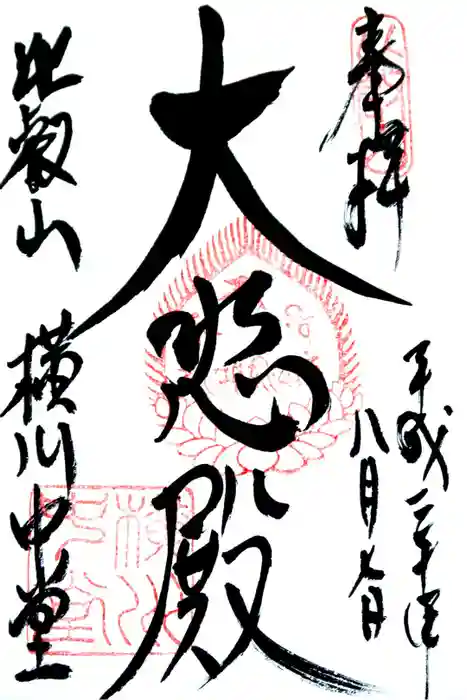 奉拝
平成二十年
八月七日
大悲殿
比叡山
横川中堂